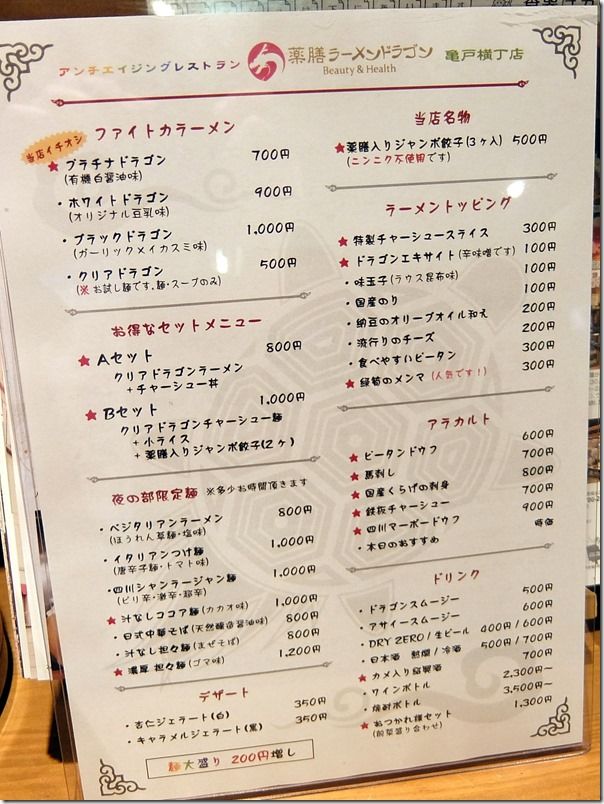 アンチエイジングレストラン 薬膳ラーメンドラゴン 亀戸横丁店
Beauty & Health
当店イチオシ
ファイトカラーメン
★ プラチナドラゴン 700円
(有機白醤油味)
・ホワイトドラゴン 900円
(オリジナル豆乳味)
・ブラックドラゴン 1,000円
(ガーリックメイカスミ味)
・クリアドラゴン 500円
(※お試し麺です。麺・スープのみ)
お得なセットメニュー
★ Aセット 800円
クリアドラゴンラーメン
+チャーシュー丼
★ Bセット 1,000円
クリアドラゴンチャーシュー麺
+小ライス
+薬膳入りジャンボ餃子(2ヶ)
夜の部限定麺 ※多少お時間頂きます
・ベジタリアンラーメン 800円
(ほうれん草麺・塩味)
・イタリアンつけ麺 1,000円
(唐辛子麺・トマト味)
・四川シャンラージャン麺 1,000円
(ピリ辛・激辛・超辛)
★ 汁なしココア麺(カカオ味) 1,000円
・日式中華そば(天然醸造醤油味) 800円
・汁なし担々麺(まぜそば) 800円
★ 濃厚 担々麺(ゴマ味) 1,200円
デザート
・杏仁ジェラート(白) 350円
・キャラメルジェラート(黒) 350円
麺大盛り 200円増し
当店名物
★ 薬膳入りジャンボ餃子(3ヶ入) 500円
(ニンニク不使用です)
ラーメントッピング
★ 特製チャーシュースライス 300円
★ ドラゴンエキサイト(辛味噌です) 100円
・味玉子(ラウス昆布味) 100円
・国産のり 100円
・納豆のオリーブオイル和え 200円
・流行りのチーズ 200円
・食べやすいピータン 300円
★ 緑菊のメンマ(人気です!) 300円
アラカルト
★ ピータンドウフ 600円
★ 馬刺し 700円
★ 国産くらげの刺身 800円
★ 鉄板チャーシュー 700円
★ 四川マーボードウフ 900円
・本日のおすすめ 時価
ドリンク
・ドラゴンスムージー 500円
・アサイースムージー 600円
・DRY ZERO / 生ビール 400円 / 600円
・日本酒 熱燗 / 冷酒 500円 / 700円
★ カメ入り紹興酒 700円
・ワインボトル 2,300円〜
・焼酎ボトル 3,500円〜
★ おつかれ様セット 1,300円
(前菜盛り合わせ)